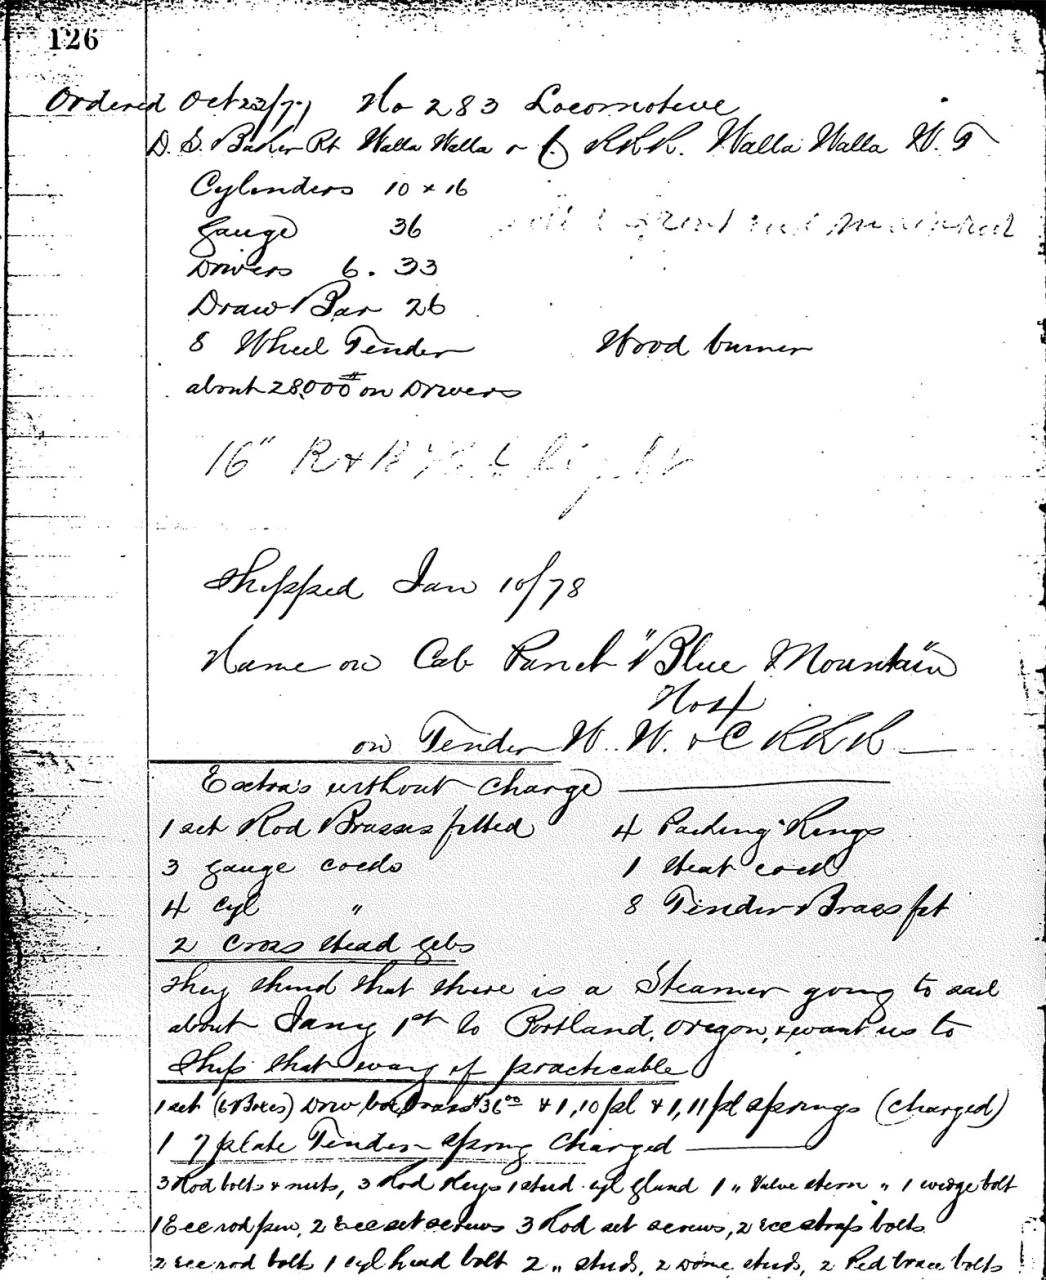 126
Ordered Oct 23/77 No 283 Locomotive
D. S. Baker Pt Walla Walla & C. RRR. Walla Walla W. T
Cylinders 10 x 16
Gauge 36
Drivers 6. 33
Draw Bar 26
8 Wheel Tender Wood burner
about 28,000# on Drivers
16" R & R
Shipped Jan 10/78
Name on Cab Panel "Blue Mountain"
No 4
on Tender W. W. & C RRR
Extra's without Charge
1 set Rod Brasses fitted 4 Packing Rings
3 gauge cocks 1 Heat cock
4 Cyl " 8 Tender Brass fit
2 Cross Head Gibs
They think that there is a Steamer going to sail
about Jany 1st to Portland, Oregon, & want us to
Ship that way if practicable
1 set (6 Boxes) Driv box brass $36.00 & 1, 10 pl & 1, 11 pl springs (charged)
1 7 plate Tender spring Charged
3 Rod bolts & nuts, 3 Rod Keys 1 stud cyl gland 1 " Valve stem " 1 wedge bolt
1 Ecc rod pin, 2 Ecc set screws 3 Rod set screws, 2 ecc strap bolts
2 ecc rod bolts 1 cyl head bolt 2 " studs, 2 dome studs, 2 Ped brace bolts